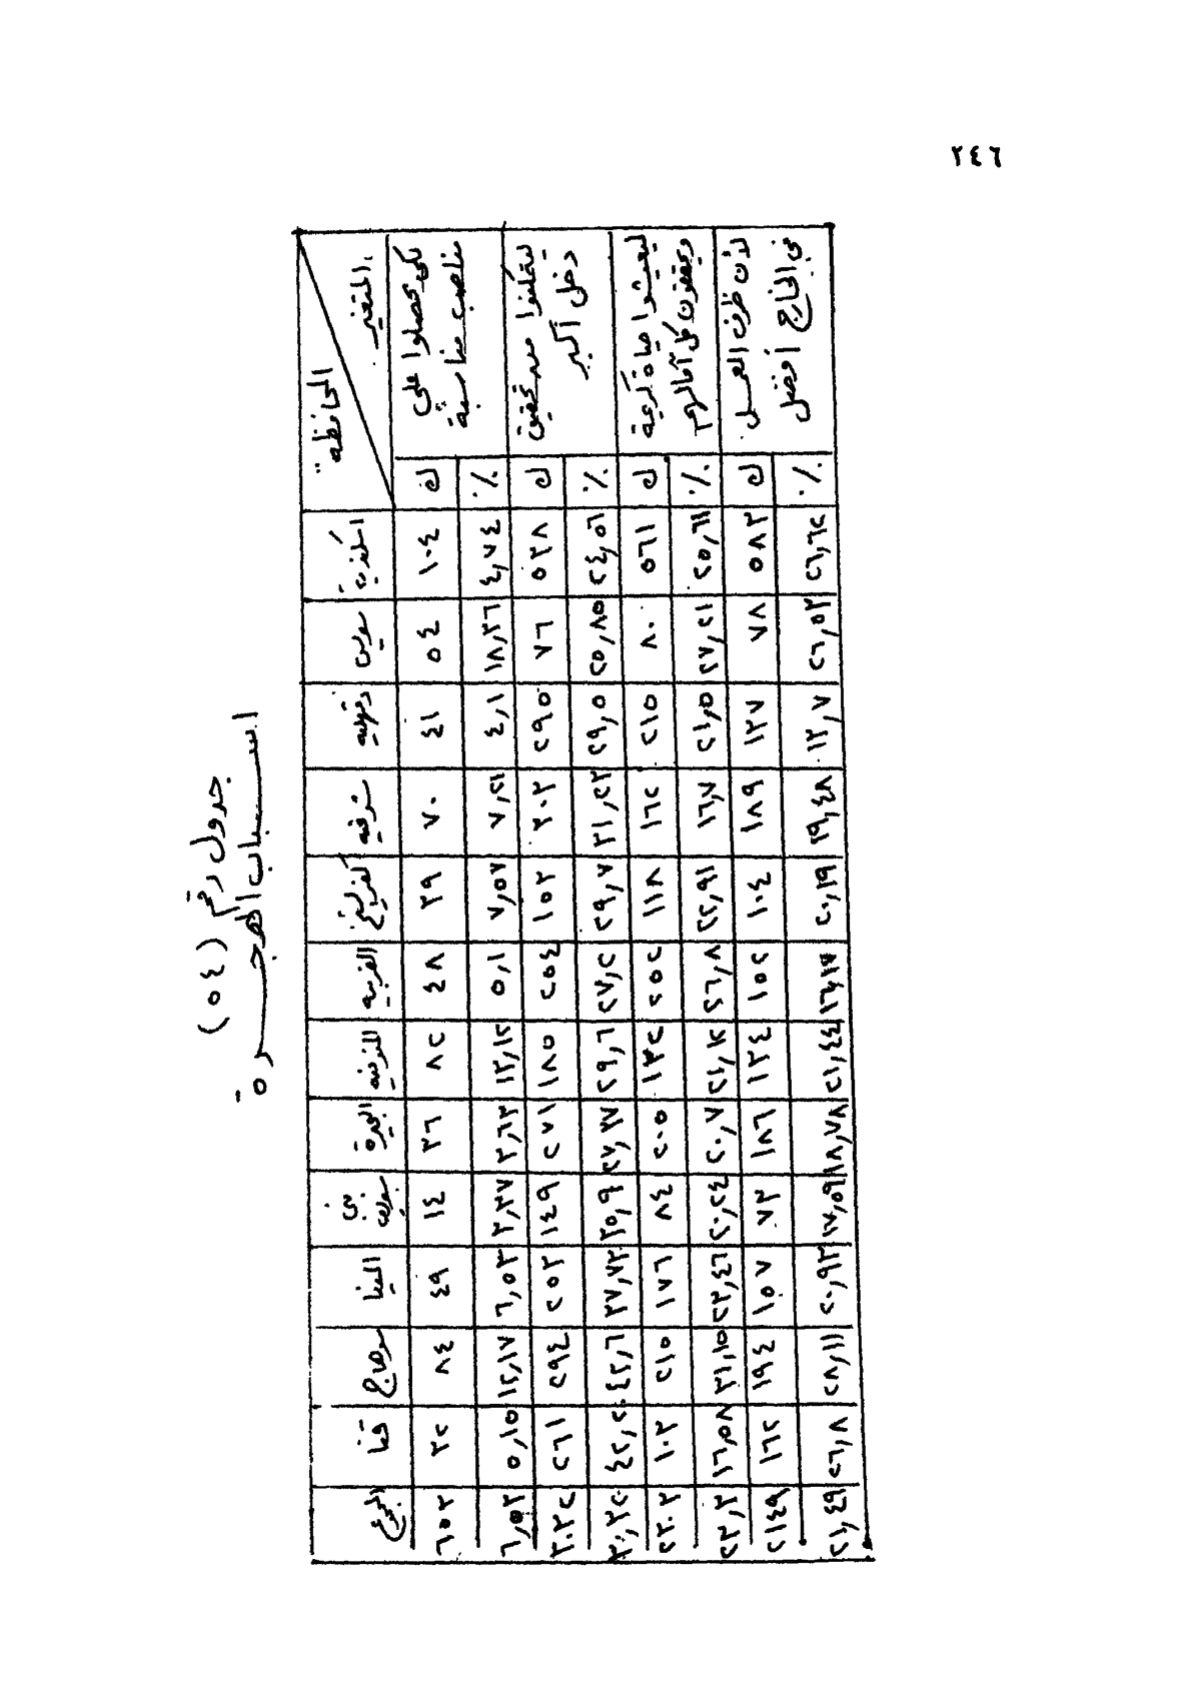 ٢٤٦
جدول رقم (٥٤)
اسباب الهجرة
المحافظة اسكندرية سويس دقهلية شرقيه كفرالشيخ الغربيه المنوفيه البحيرة بنى سويف المنيا سوهاج قنا المجموع
المتغير
لكى يحصلوا على
مناصب مناسبة
ك ١٠٤ ٥٤ ٤١ ٧٠ ٣٩ ٤٨ ٨٢ ٣٦ ١٤ ٤٩ ٨٤ ٣٢ ٦٥٣
٪ ٤,٧٤ ١٨,٣٦ ٤,١ ٧,٢١ ٧,٥٧ ٥,١ ١٣,١٢ ٣,٦٣ ٣,٣٧ ٦,٥٣ ١٢,١٧ ٥,١٥ ٦,٥٣
ليتمكنوا من تحقيق
دخل أكبر
ك ٥٣٨ ٧٦ ٢٩٥ ٣٠٣ ١٥٣ ٢٥٤ ١٨٥ ٢٧١ ١٤٩ ٢٥٣ ٢٩٤ ٢٦١ ٣٠٣٢
٪ ٢٤,٥٦ ٢٥,٨٥ ٢٩,٥ ٣١,٢٣ ٢٩,٧ ٢٧,٢ ٢٩,٦ ٢٧,٣٧ ٣٥,٩ ٣٧,٧٣ ٤٢,٦ ٤٢,٢٠ ٣٠,٣٢
ليعيشوا حياة كريمة
ويحققون كل آمالهم
ك ٥٦١ ٨٠ ٢١٥ ١٦٢ ١١٨ ٢٥٢ ١٣٢ ٢٠٥ ٨٤ ١٧٦ ٢١٥ ١٠٣ ٢٣٠٣
٪ ٢٥,٦١ ٢٧,٢١ ٢١,٥ ١٦,٧ ٢٢,٩١ ٢٦,٨ ٢١,١٢ ٢٠,٧ ٢٠,٢٤ ٢٣,٤٦ ٣١,١٥ ١٦,٥٨ ٢٣,٣
لأن ظروف العمل
فى الخارج أفضل
ك ٥٨٣ ٧٨ ١٣٧ ١٨٩ ١٠٤ ١٥٢ ١٣٤ ١٨٦ ٧٣ ١٥٧ ١٩٤ ١٦٢ ٢١٤٩
٪ ٢٦,٦٢ ٢٦,٥٣ ١٣,٧ ١٩,٤٨ ٢٠,١٩ ١٦,١٧ ٢١,٤٤ ١٨,٧٨ ١٧,٥٩ ٢٠,٩٣ ٢٨,١١ ٢٦,٨ ٢١,٤٩